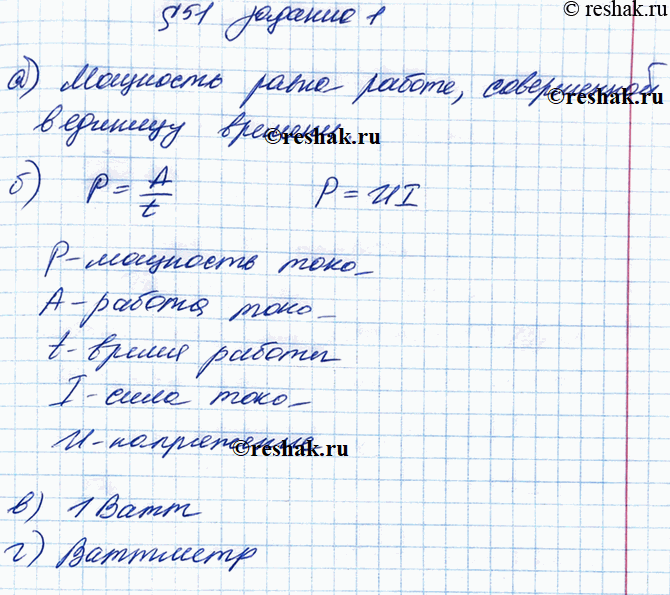 © reshak.ru
§51 задание 1
а) Мощность равна работе, совершенной
© reshak.ru
в единицу времени
© reshak.ru
б) P = A/t P = UI
P - мощность тока
A - работа тока
t - время работы
I - сила тока
U - напряжение
© reshak.ru
в) 1 Ватт
г) Ваттметр